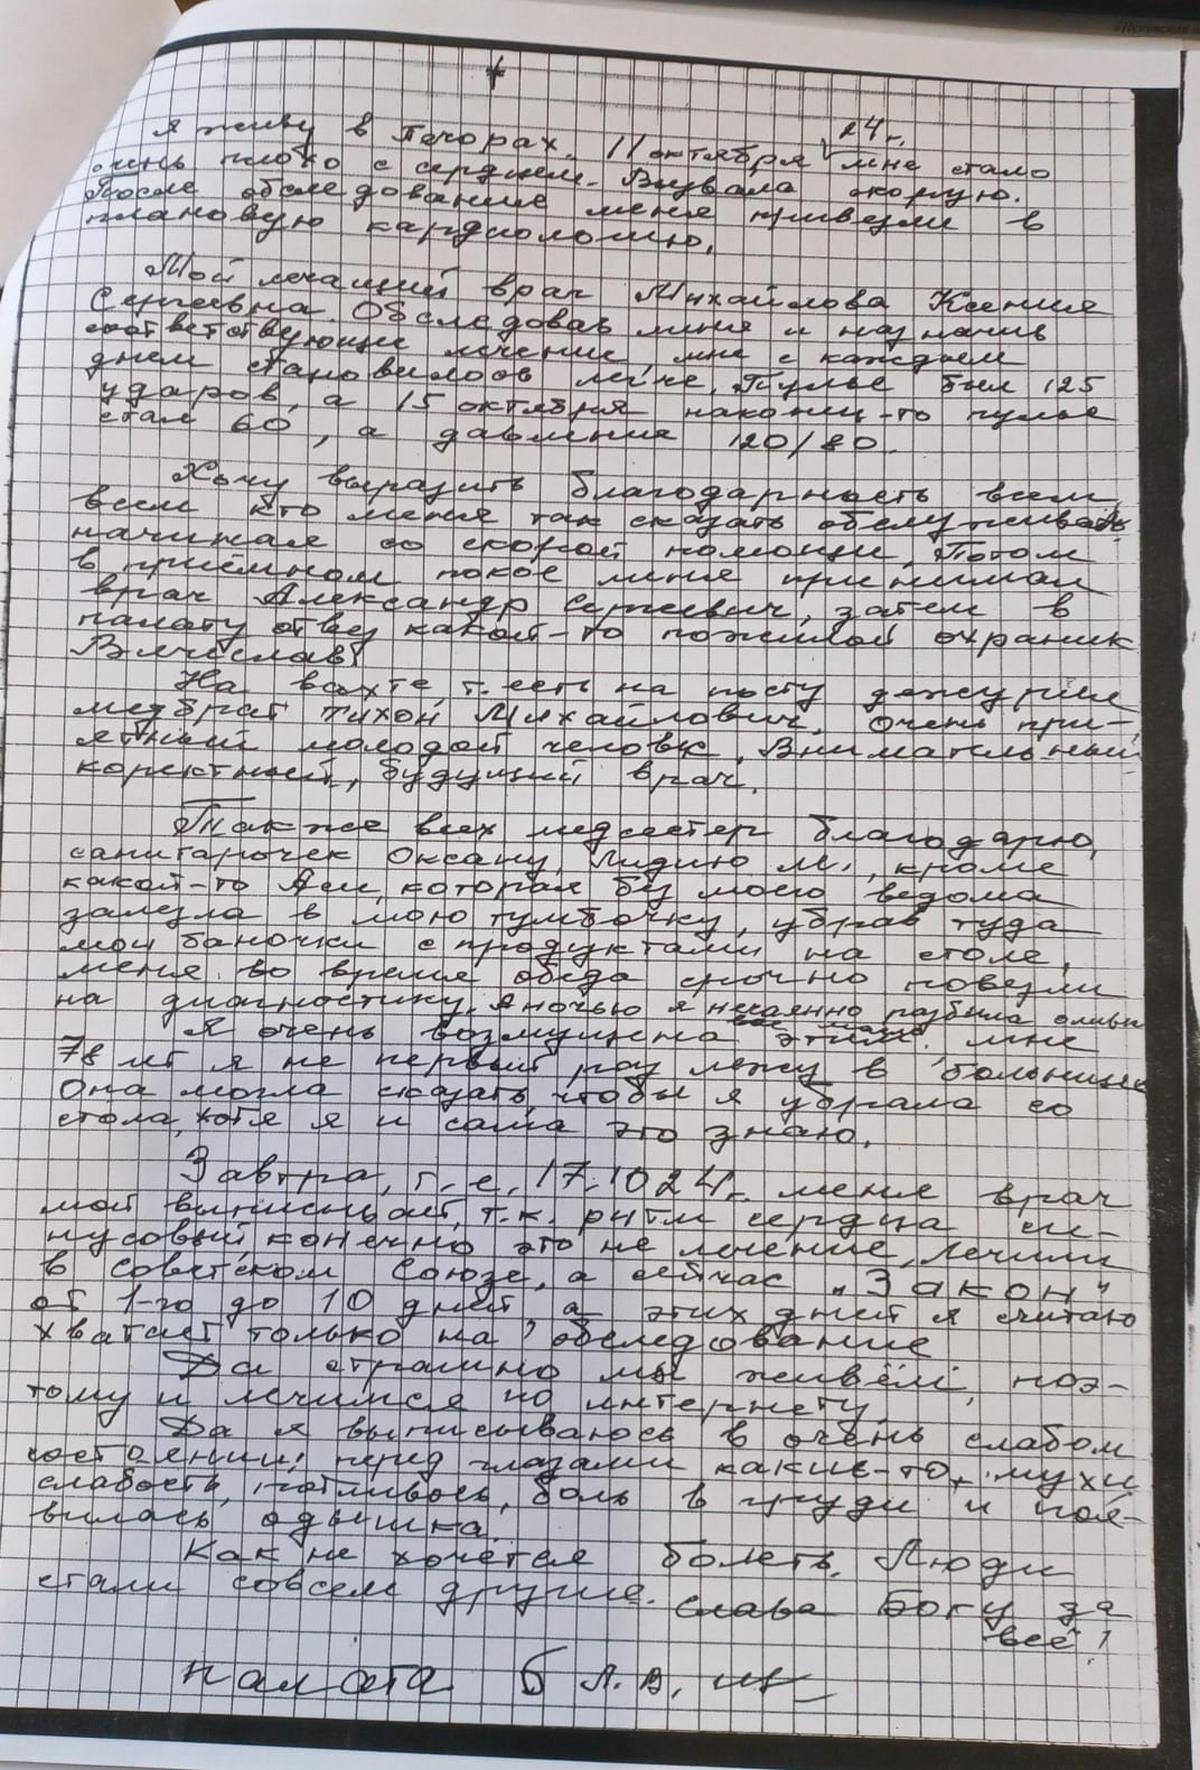 24 г.
Я живу в Печорах. 11 октября мне стало
очень плохо с сердцем. Вызвала скорую.
После обследование меня привезли в
плановую кардиологию.
Мой лечащий врач Михайлова Ксения
Сергеевна. Обследовав меня и назначив
соответствующие лечение, мне с каждым
днем становилось легче. Пульс был 125
ударов, а 15 октября наконец-то пульс
стал 60, а давление 120/80.
Хочу выразить благодарность всем,
всем кто меня так сказать обслуживал,
начиная со скорой помощи. Потом
в приёмном покое меня принимал
врач Александр Сергеевич, затем в
палату отвез какой-то пожилой охраник
Вячеслав.
На вахте, т. есть на посту дежурил
медбрат Тихон Михайлович. Очень при-
ятный молодой человек. Внимательный
коректный, будущий врач.
Также всех медсестер благодарю,
санитарочек Оксану, Лидию М., кроме
какой-то которая без моего ведома
залезла в мою тумбочку, убрав туда
мои баночки с продуктами на столе,
меня во время обеда срочно повезли
на диагностику. А ночью я нечаянно разбила
Я очень возмущена этим. Мне
78 лет я не первый раз лежу в больнице
Она могла сказать, чтобы я убрала со
стола, хотя я и сама это знаю.
Завтра, т. е. 17.10 24 г. меня врач
мой выписывает, т.к. ритм сердца си-
нусовый, конечно это не лечение, лечили
в советском Союзе, а сейчас „Закон"
от 1-го до 10 дней а этих дней я считаю
хватает только на обследование
Да страшно мы живём, поэ-
тому и лечимся по интернету.
Да я выписываюсь в очень слабом
состоянии; перед глазами какие-то мухи
слабость, потливось, боль в груди и поя-
вилась одышка.
Как не хочется болеть. Люди
стали совсем другие. Слава Богу за
всё!
палата 5 Л. В.